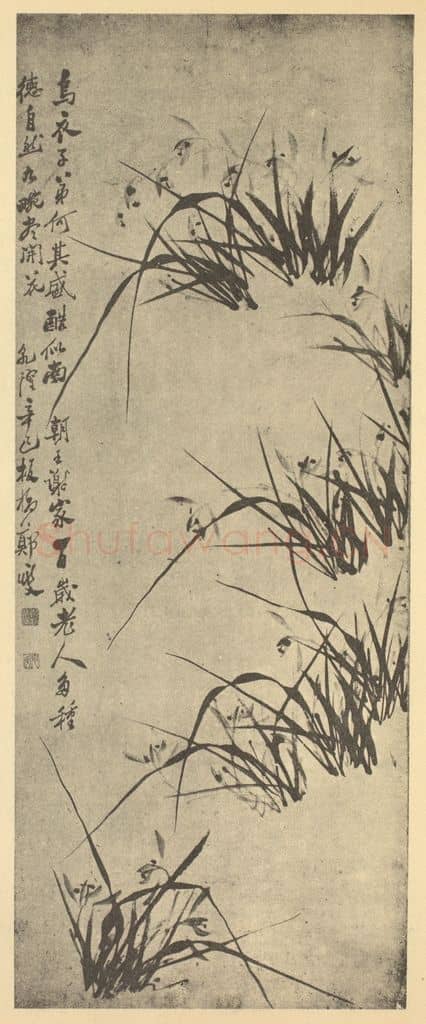 烏衣子弟何其盛酷似南朝王謝家百歲老人多種
德自然九畹盡開花
乾隆辛巳板橋鄭燮
Shufawang.CN